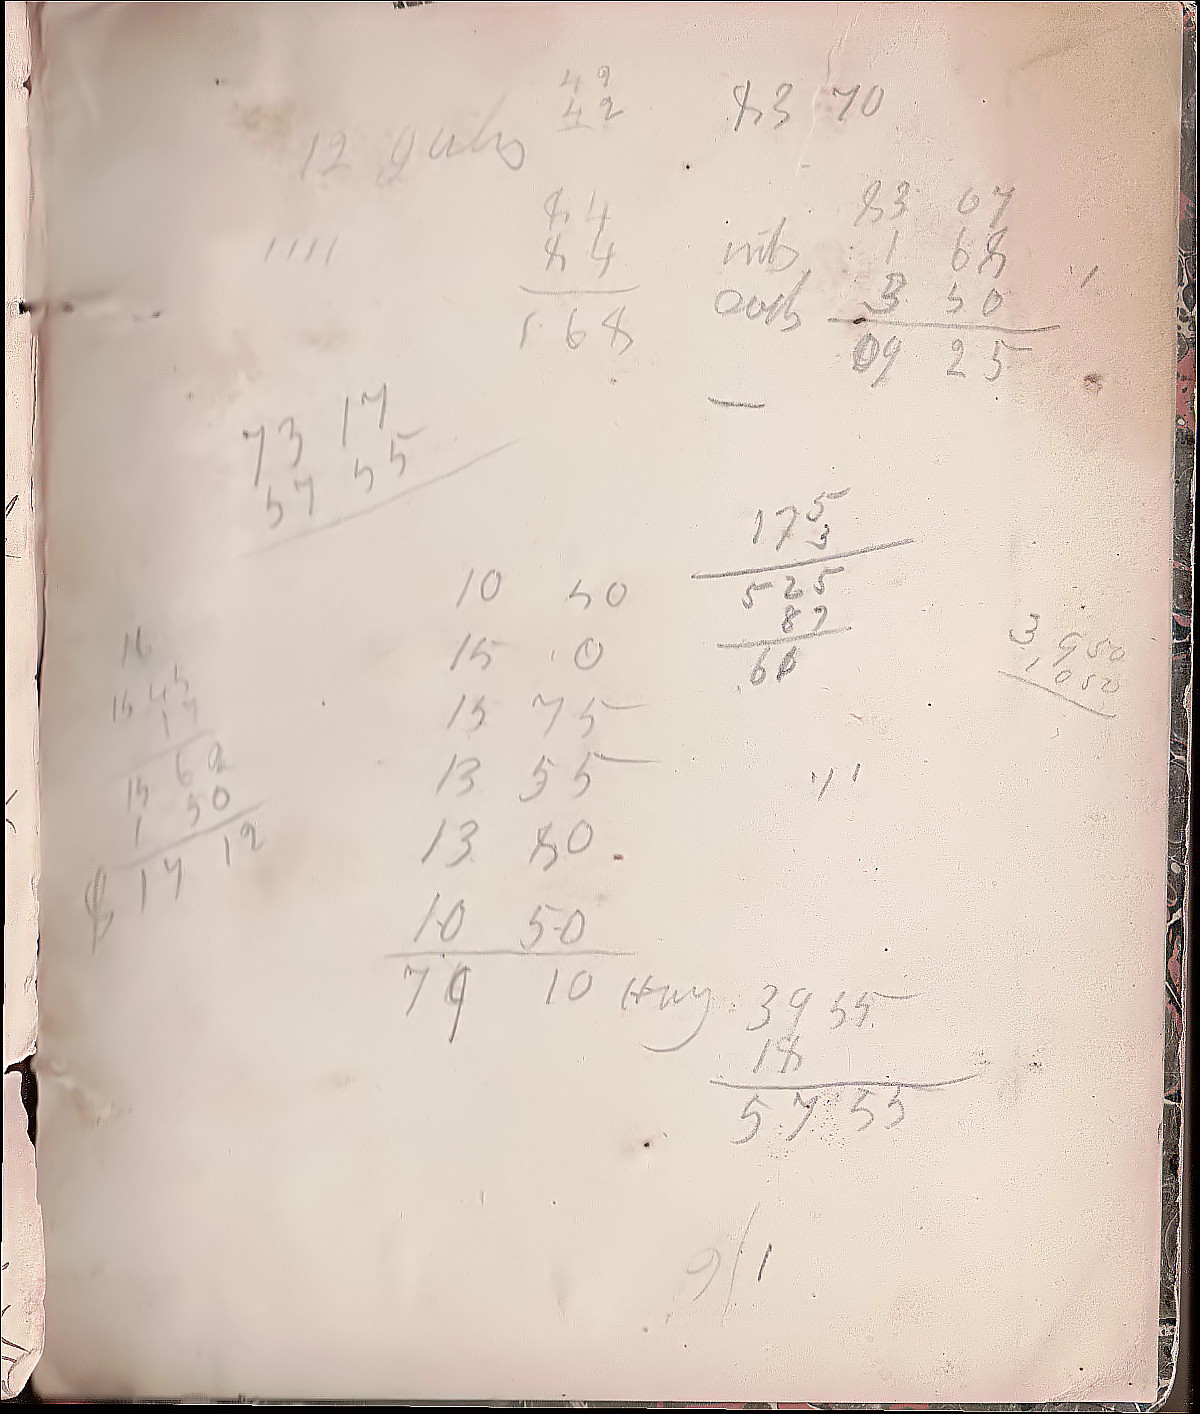 42
42
83 70
12
84
84
168
83 07
1 68
3 50
09 25
1111
73 17
57 55
175
3
525
87
10 50
15 0
15 75
13 55
13 80
10 50
79 10 Hay
16
15 45
17
15 62
1 50
$ 17 12
3950
1050
39 55
18
57 55